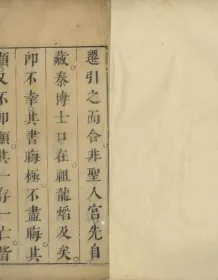 遷引之而合非聖人宮先自
藏秦博士口在祖龍焰及矣
卽不幸其書晦極不盡晦其
顯又不卽顯其一存一亡皆